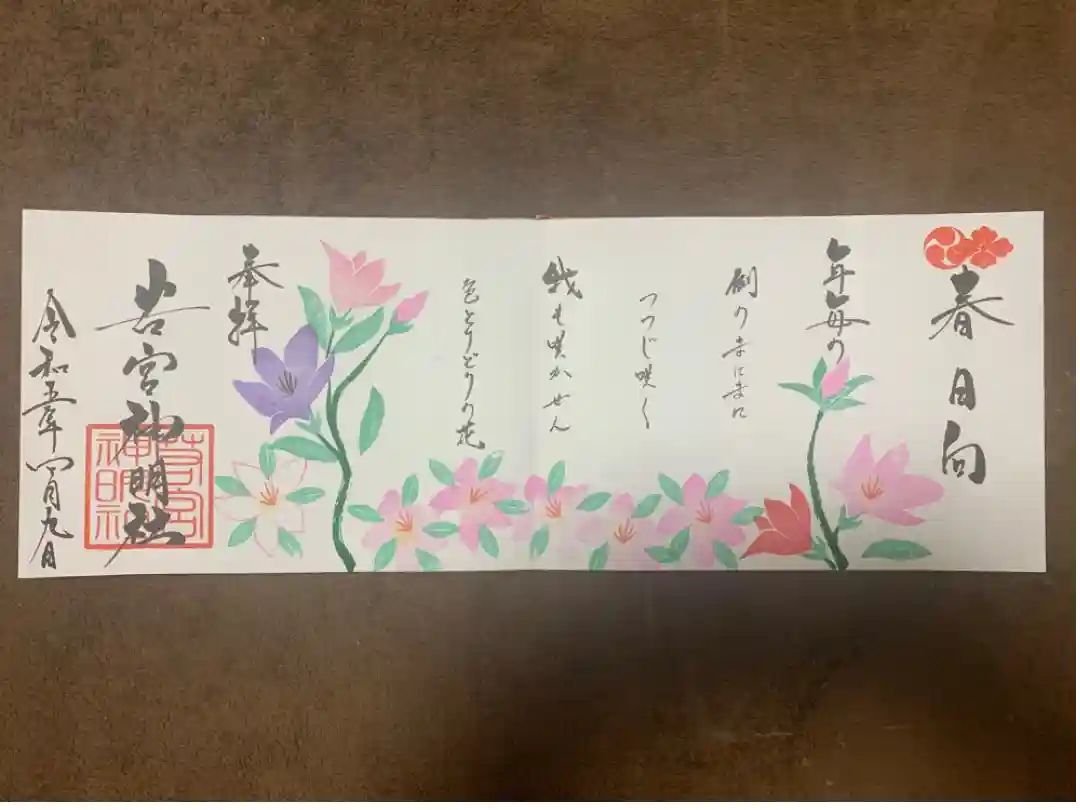 春日向
年毎の
例のまにまに
つつじ咲く
我も咲かせん
色とりどりの花
奉拝
若宮神明社
令和五年四月九日